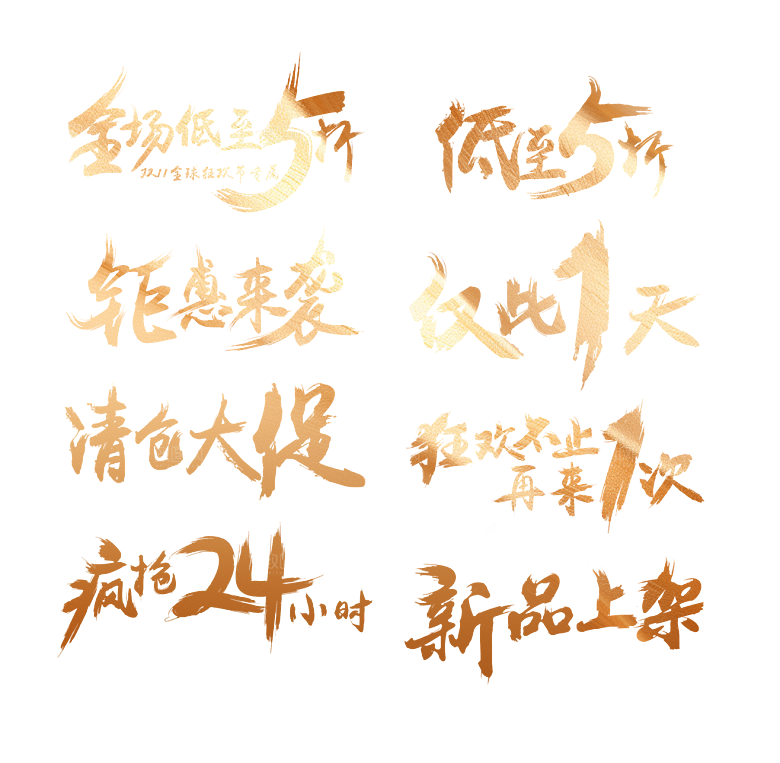 全场低至5折
双11全球狂欢节专属
低至5折
钜惠来袭
仅此1天
清仓大促
狂欢不止
再来1次
疯抢24小时
新品上架